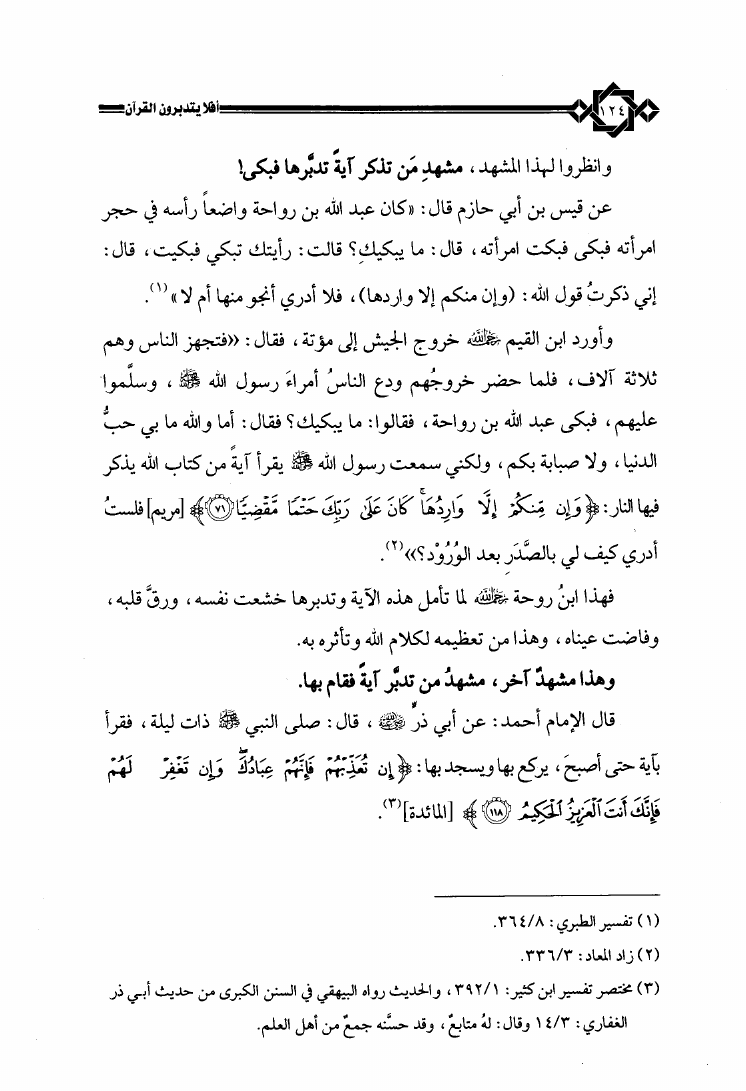 ١٢٤ أفلا يتدبرون القرآن
وانظروا لهذا المشهد، مشهدِ مَن تذكر آيةً تدبَّرها فبكى!
عن قيس بن أبي حازم قال: «كان عبد الله بن رواحة واضعاً رأسه في حجر
امرأته فبكى فبكت امرأته، قال: ما يبكيكِ؟ قالت: رأيتك تبكي فبكيت، قال:
إني ذكرتُ قول الله: (وإن منكم إلا واردها)، فلا أدري أنجو منها أم لا»(١).
وأورد ابن القيم رحمه الله خروج الجيش إلى مؤتة، فقال: «فتجهز الناس وهم
ثلاثة آلاف، فلما حضر خروجُهم ودع الناسُ أمراءَ رسول الله ﷺ، وسلَّموا
عليهم، فبكى عبد الله بن رواحة، فقالوا: ما يبكيك؟ فقال: أما والله ما بي حبُّ
الدنيا، ولا صبابة بكم، ولكني سمعت رسول الله ﷺ يقرأ آيةً من كتاب الله يذكر
فيها النار: ﴿وَإِن مِّنكُمْ إِلَّا وَارِدُهَا ۚ كَانَ عَلَىٰ رَبِّكَ حَتْمًا مَّقْضِيًّا ٧١﴾ [مريم] فلستُ
أدري كيف لي بالصَّدَرِ بعد الوُرُوْد؟»(٢).
فهذا ابنُ روحة رحمه الله لما تأمل هذه الآية وتدبرها خشعت نفسه، ورقَّ قلبه،
وفاضت عيناه، وهذا من تعظيمه لكلام الله وتأثره به.
وهذا مشهدٌ آخر، مشهدُ من تدبَّر آيةً فقام بها.
قال الإمام أحمد: عن أبي ذرٍّ رضي الله عنه، قال: صلى النبي ﷺ ذات ليلة، فقرأ
بآية حتى أصبحَ، يركع بها ويسجد بها: ﴿إِن تُعَذِّبْهُمْ فَإِنَّهُمْ عِبَادُكَ ۖ وَإِن تَغْفِرْ لَهُمْ
فَإِنَّكَ أَنتَ الْعَزِيزُ الْحَكِيمُ ١١٨﴾ [المائدة](٣).
(١) تفسير الطبري: ٣٦٤/٨.
(٢) زاد المعاد: ٣٣٦/٣.
(٣) مختصر تفسير ابن كثير: ٣٩٢/١، والحديث رواه البيهقي في السنن الكبرى من حديث أبي ذر
الغفاري: ١٤/٣ وقال: لهُ متابعٌ، وقد حسَّنه جمعٌ من أهل العلم.